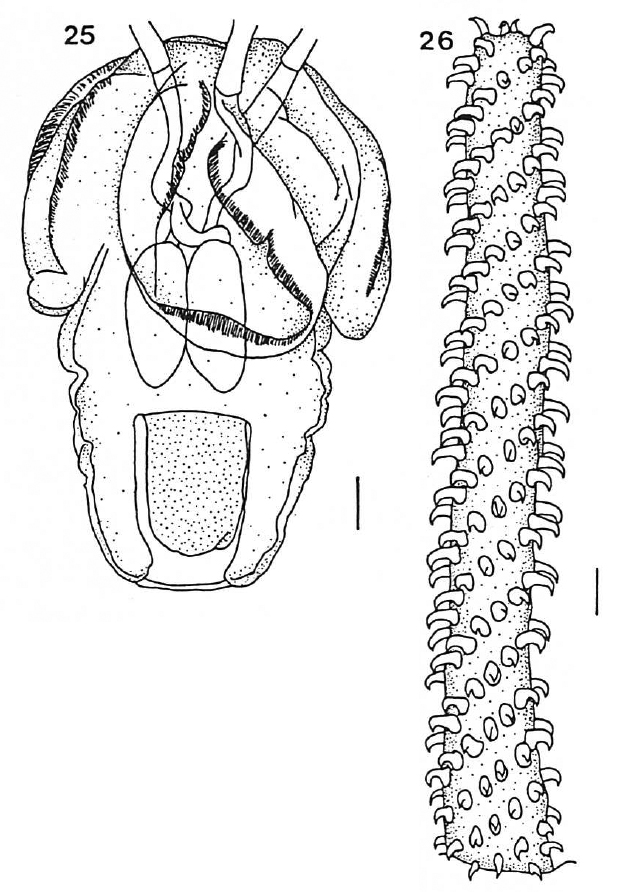 25
26